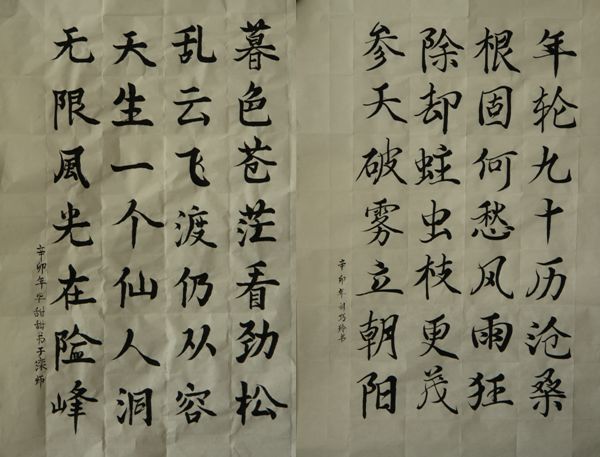 年轮九十历沧桑
根固何愁风雨狂
除却蛀虫枝更茂
参天破雾立朝阳
辛卯年玲书
暮色苍茫看劲松
乱云飞渡仍从容
天生一个仙人洞
无限風光在险峰
辛卯年华甜甜书于滦师